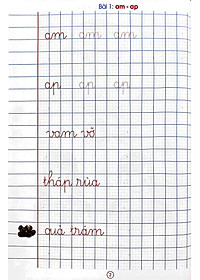 Bài 1: am - ap
am am am
ap ap ap
vam vỡ
tháp rùa
quả trám
2